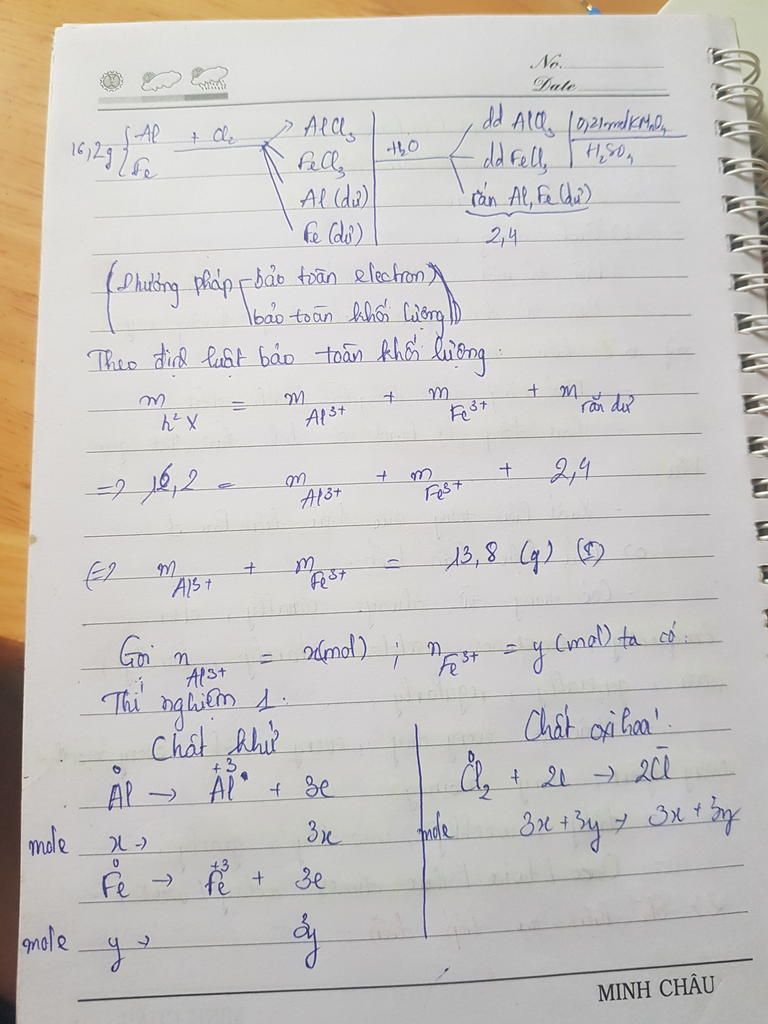 No.
Date
16,2g { Al + Cl₂ → AlCl₃ | +H₂O dd AlCl₃ | 0,21 mol KMnO₄
Fe FeCl₃ dd FeCl₃ | H₂SO₄
Al (dư) rắn Al, Fe (dư)
Fe (dư) 2,4
(Phương pháp bảo toàn electron)
bảo toàn khối lượng
Theo định luật bảo toàn khối lượng :
m h² X = m Al³⁺ + m Fe³⁺ + m rắn dư
=> 16,2 = m Al³⁺ + m Fe³⁺ + 2,4
(=> m Al³⁺ + m Fe³⁺ = 13,8 (g) (1)
Gọi n Al³⁺ = x(mol) ; n Fe³⁺ = y (mol) ta có.
Thí nghiệm 1.
Chất khử
Al⁰ → Al⁺³ + 3e
mole x → 3x
Fe⁰ → Fe⁺³ + 3e
mole y → 3y
Chất oxi hoá
Cl₂⁰ + 2e → 2Cl⁻
mole 3x + 3y → 3x + 3y
MINH CHÂU